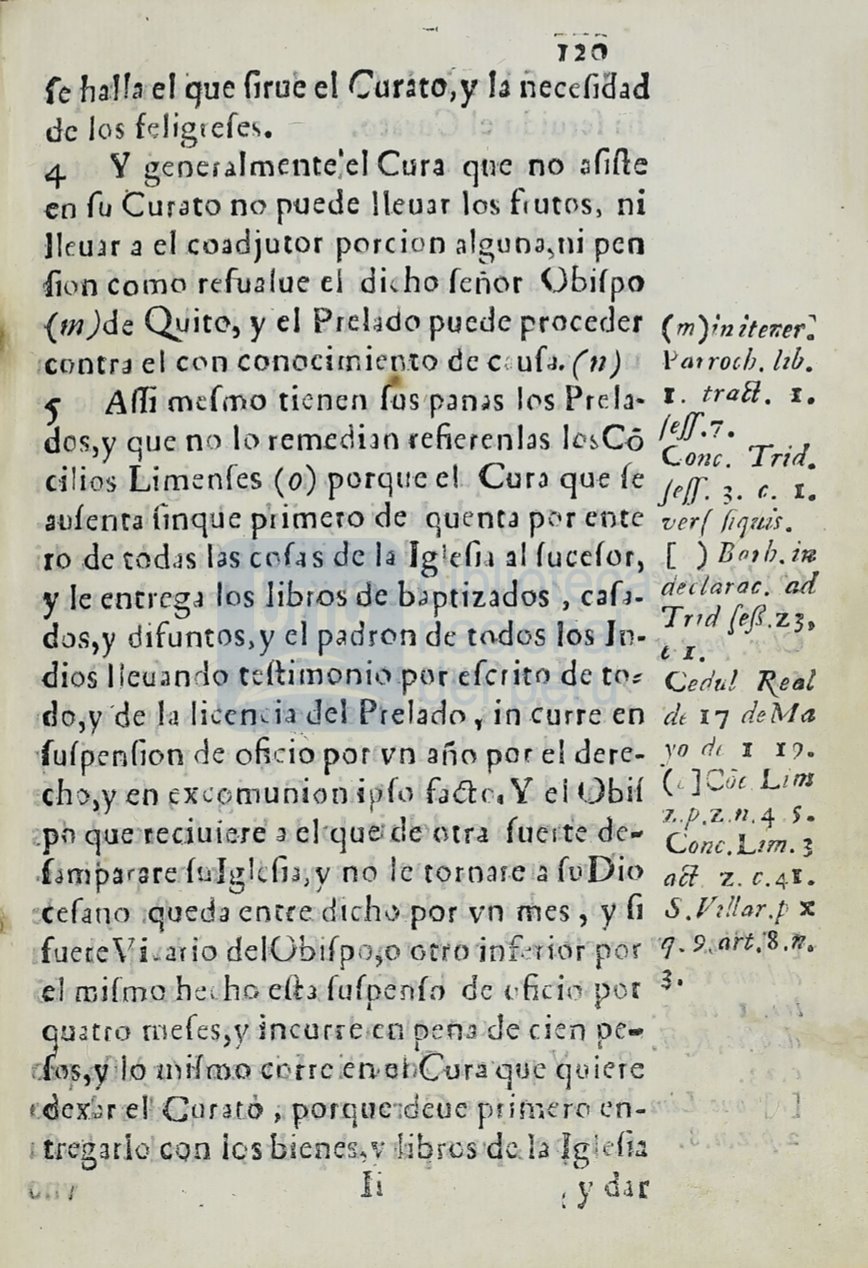 120
se halla el que sirue el Curato, y la necesidad
de los feligreses.
4 Y generalmente el Cura que no asiste
en su Curato no puede lleuar los frutos, ni
lleuar a el coadjutor porcion alguna, ni pen
sion como resualue el dicho señor Obispo
(m) de Quito, y el Prelado puede proceder
contra el con conocimiento de causa. (n)
5 Assi mesmo tienen sus panas los Prela-
dos, y que no lo remedian refierenlas los Cō
cilios Limenses (o) porque el Cura que se
ausenta sinque primero de quenta por ente
ro de todas las cosas de la Iglesia al sucesor,
y le entrega los libros de baptizados, casa-
dos, y difuntos, y el padron de todos los In-
dios lleuando testimonio por escrito de to-
do, y de la licencia del Prelado, in curre en
suspension de oficio por vn año por el dere-
cho, y en excomunion ipso facto. Y el Obis
po que reciuiere a el que de otra suerte de-
samparare su Iglesia, y no le tornare a su Dio
cesano queda entre dicho por vn mes, y si
fuere Vicario del Obispo, o otro inferior por
el mismo hecho esta suspenso de oficio por
quatro meses, y incurre en pena de cien pe-
sos, y lo mismo corre en el Cura que quiere
dexar el Curato, porque deue primero en-
tregarlo con los bienes, y libros de la Iglesia
Ii
y dar
(m) in itener.
Parroch. lib.
1. tract. 1.
sess. 7.
Conc. Trid.
sess. 3. c. 1.
vers siquis.
[ ) Barb. in
declarac. ad
Trid sess. 23,
c 1.
Cedul Real
de 17 de Ma
yo de 1 19.
Cōc Lim
2. p. 2. n. 4 5.
Conc. Lim. 3
act 2. c. 41.
S. Villar. p x
q. 9. art. 8. n.
3.